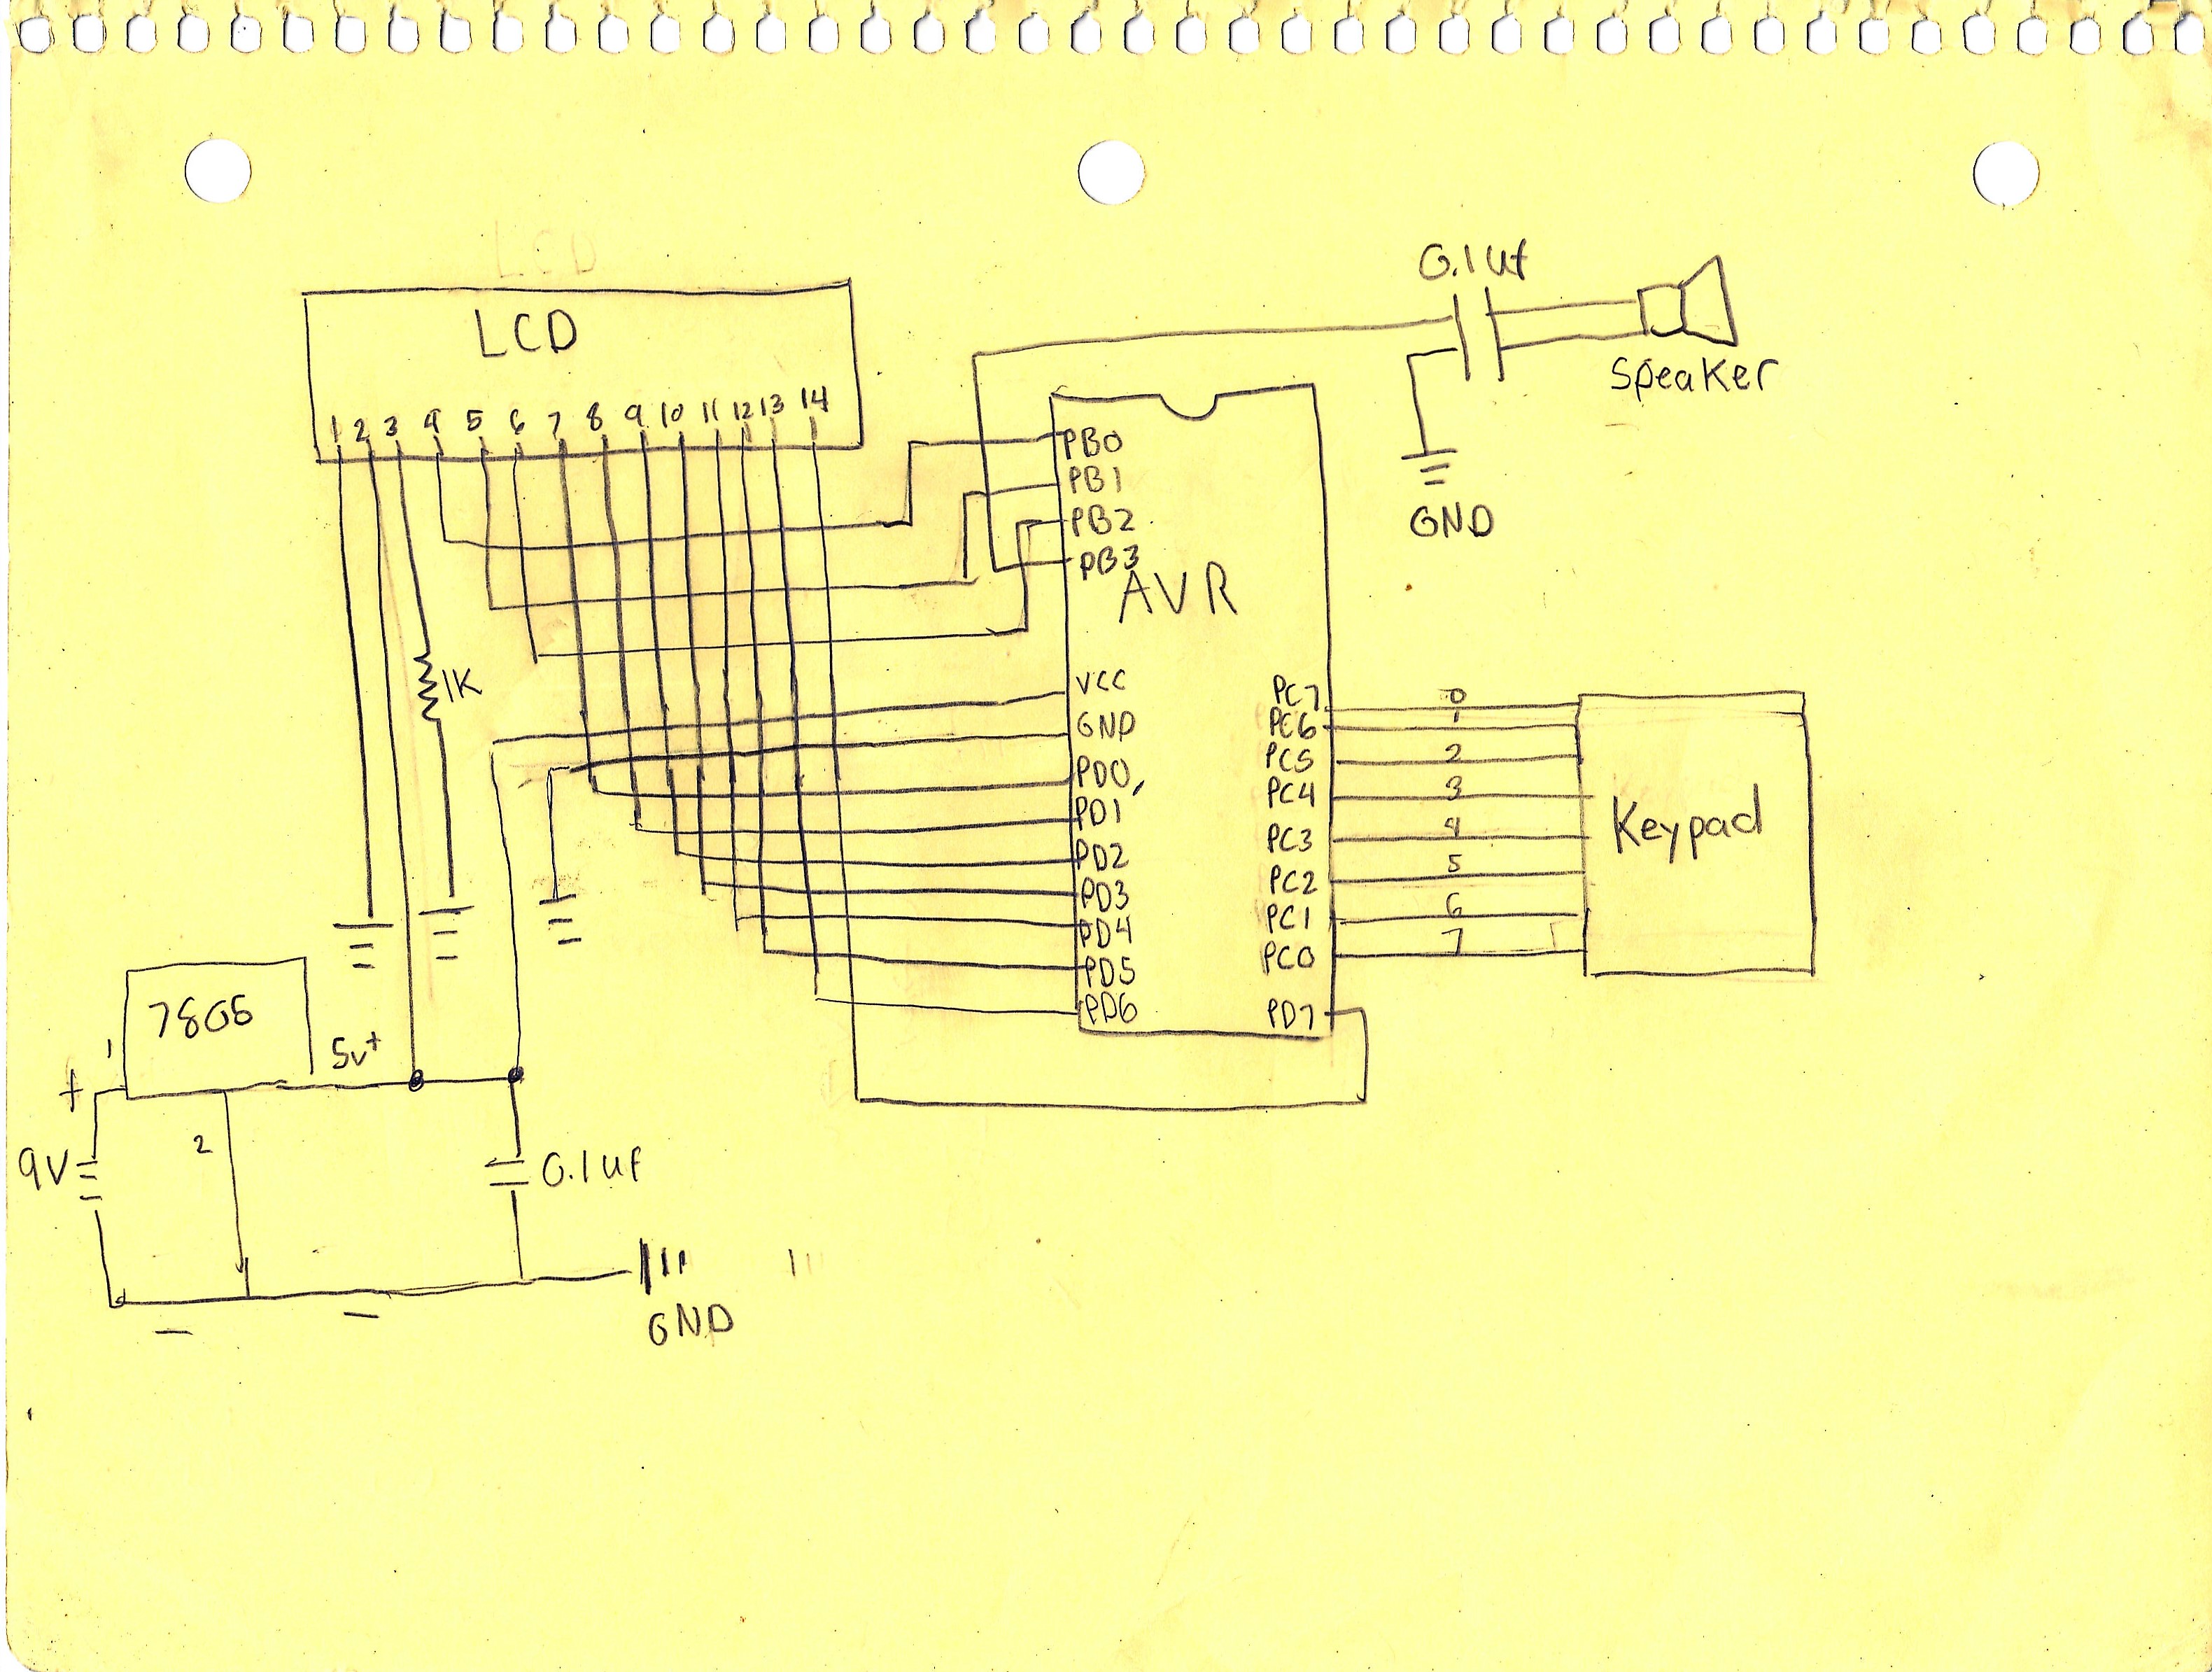 LCD
LCD
1 2 3 4 5 6 7 8 9 10 11 12 13 14
0.1uf
Speaker
GND
PB0
PB1
PB2
PB3
AVR
VCC
GND
PD0,
PD1
PD2
PD3
PD4
PD5
PD6
PC7
PC6
PC5
PC4
PC3
PC2
PC1
PC0
PD7
0
1
2
3
4
5
6
7
Keypad
1K
7805
1
5v+
+
2
9V
0.1uf
GND